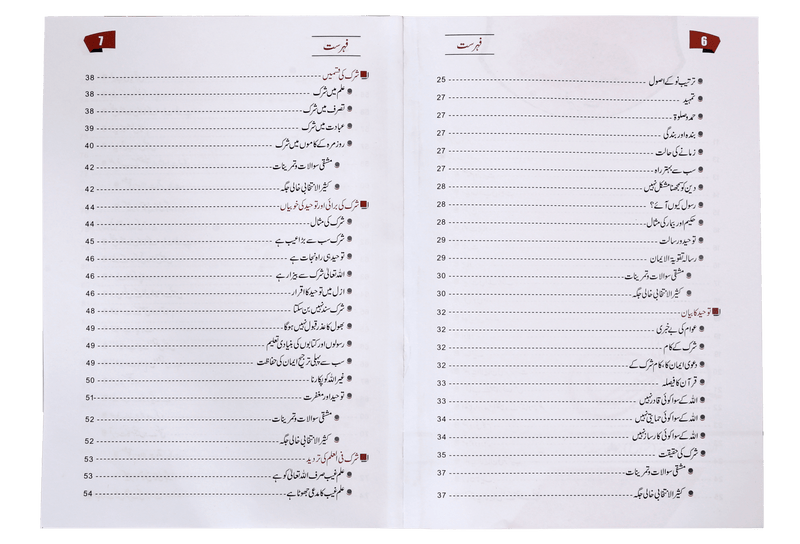 6
فہرست
ترتیب نو کے اصول 25
تمہید 27
حمد و صلوٰۃ 27
بندہ اور بندگی 27
زمانے کی حالت 27
سب سے بہتر راہ 27
دین کو سمجھنا مشکل نہیں 28
رسول کیوں آئے؟ 28
حکیم اور بیمار کی مثال 28
توحید و رسالت 29
رسالہ تقویۃ الایمان 29
مشقی سوالات و تمرینات 30
کثیر الانتخابی خالی جگہ 30
توحید کا بیان 32
عوام کی بے خبری 32
شرک کے کام 32
دعویٰ ایمان کا، کام شرک کے 32
قرآن کا فیصلہ 33
اللہ کے سوا کوئی قادر نہیں 33
اللہ کے سوا کوئی حمایتی نہیں 34
اللہ کے سوا کوئی کارساز نہیں 34
شرک کی حقیقت 35
مشقی سوالات و تمرینات 37
کثیر الانتخابی خالی جگہ 37
7
فہرست
شرک کی قسمیں 38
علم میں شرک 38
تصرف میں شرک 38
عبادت میں شرک 39
روزمرہ کے کاموں میں شرک 40
مشقی سوالات و تمرینات 42
کثیر الانتخابی خالی جگہ 42
شرک کی برائی اور توحید کی خوبیاں 44
شرک کی مثال 44
شرک سب سے بڑا عیب ہے 45
توحید ہی راہ نجات ہے 46
اللہ تعالیٰ شرک سے بیزار ہے 46
ازل میں توحید کا اقرار 46
شرک سند نہیں بن سکتا 48
بھول کا عذر قبول نہیں ہوگا 49
رسولوں اور کتابوں کی بنیادی تعلیم 49
سب سے پہلی ترجیح ایمان کی حفاظت 49
غیر اللہ کو پکارنا 50
توحید اور مغفرت 51
مشقی سوالات و تمرینات 52
کثیر الانتخابی خالی جگہ 52
شرک فی العلم کی تردید 53
علم غیب صرف اللہ تعالیٰ کو ہے 53
علم غیب کا مدعی جھوٹا ہے 54